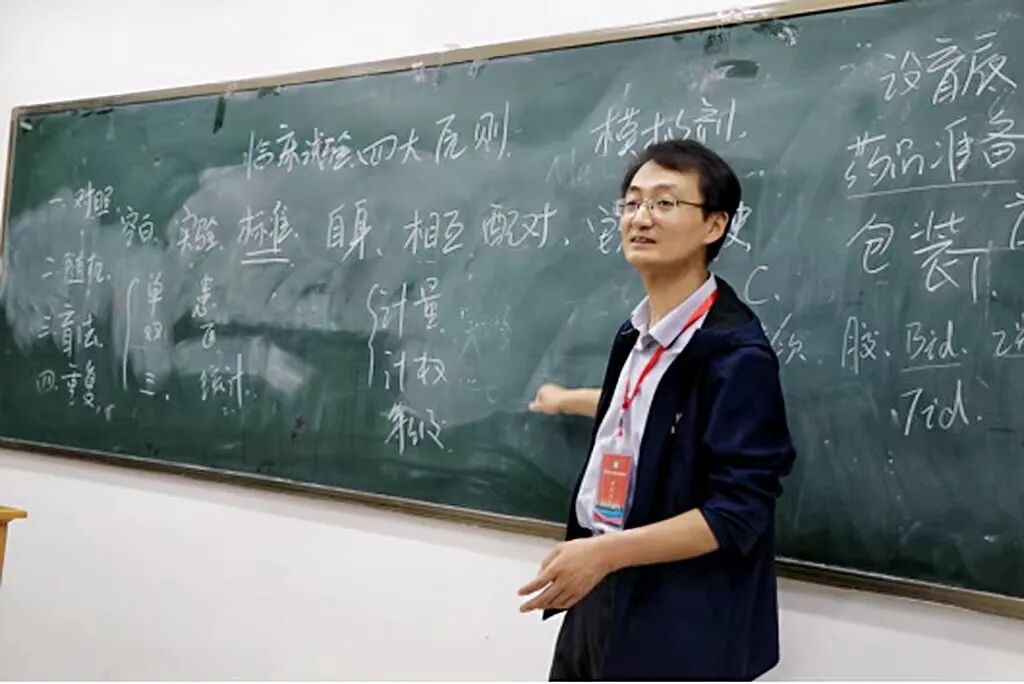 临床试验四大原则
模拟剂
设盲
药品准备
一对照
空白 实验 标准 自身 相互 配对
包装
二随机
单 患
计量
C.
三盲法
双 医
胶. Bid.
四重复
三. 统计
计权
Tid.
等级